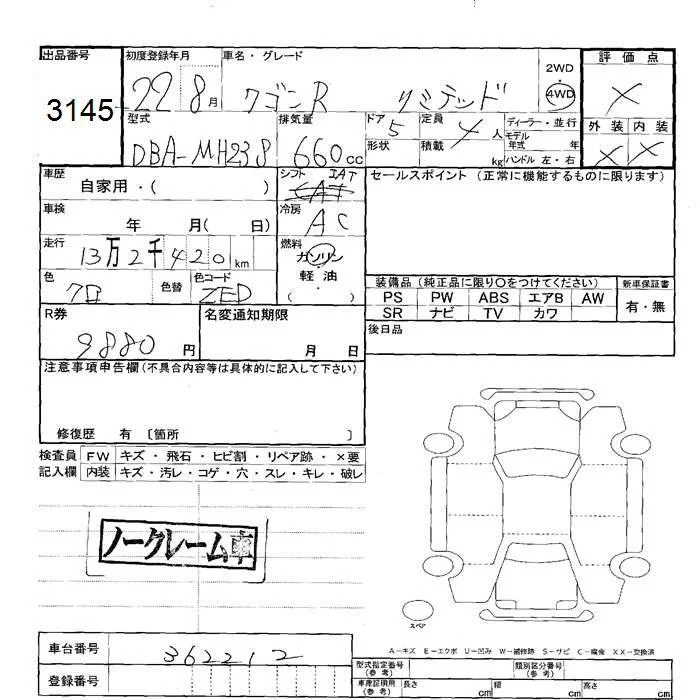 出品番号 初度登録年月 車名・グレード 2WD 評価点
3145 22 8月 ワゴンR リミテッド 4WD X
型式 排気量 ドア 5 定員 4人 ディーラー・並行 外装 内装
DBA-MH23S 660cc 形状 積載 kg モデル年式 年 X X
ハンドル 左・右
車歴 シフト IAT セールスポイント (正常に機能するものに限ります)
自家用・( )
車検 冷房
年 月( 日) AC
走行 燃料
13万2千420km ガソリン
軽油
( )
色 色替 色コード
ZED
装備品 (純正品に限り○をつけてください) 新車保証書
PS PW ABS エアB AW 有・無
SR ナビ TV カワ
R券 名変通知期限 後日品
9880円 月 日
注意事項申告欄 (不具合内容等は具体的に記入して下さい)
修復歴 有 〔箇所 〕
検査員 FW キズ・飛石・ヒビ割・リペア跡・×要
記入欄 内装 キズ・汚レ・コゲ・穴・スレ・キレ・破レ
ノークレーム車
スペア
A-キズ E-エクボ U-凹み W-補修跡 S-サビ C-腐食 XX-交換済
車台番号 362212 型式指定番号 (参考) 類別区分番号 (参考)
登録番号 車庫証明用 (参考) 長さ cm 幅 cm 高さ cm